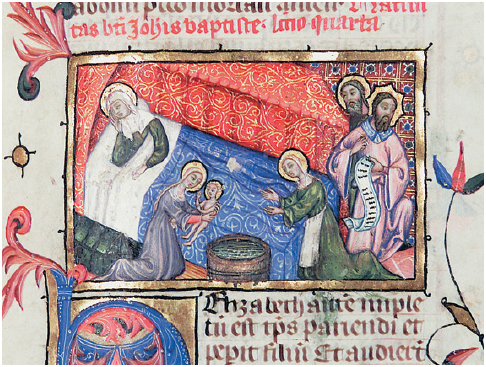 Natiui
tas bti Johis baptiste. lctio quarta.
Elizabeth aute imple
tu est tps pariendi et
pepit filiu Et audiert